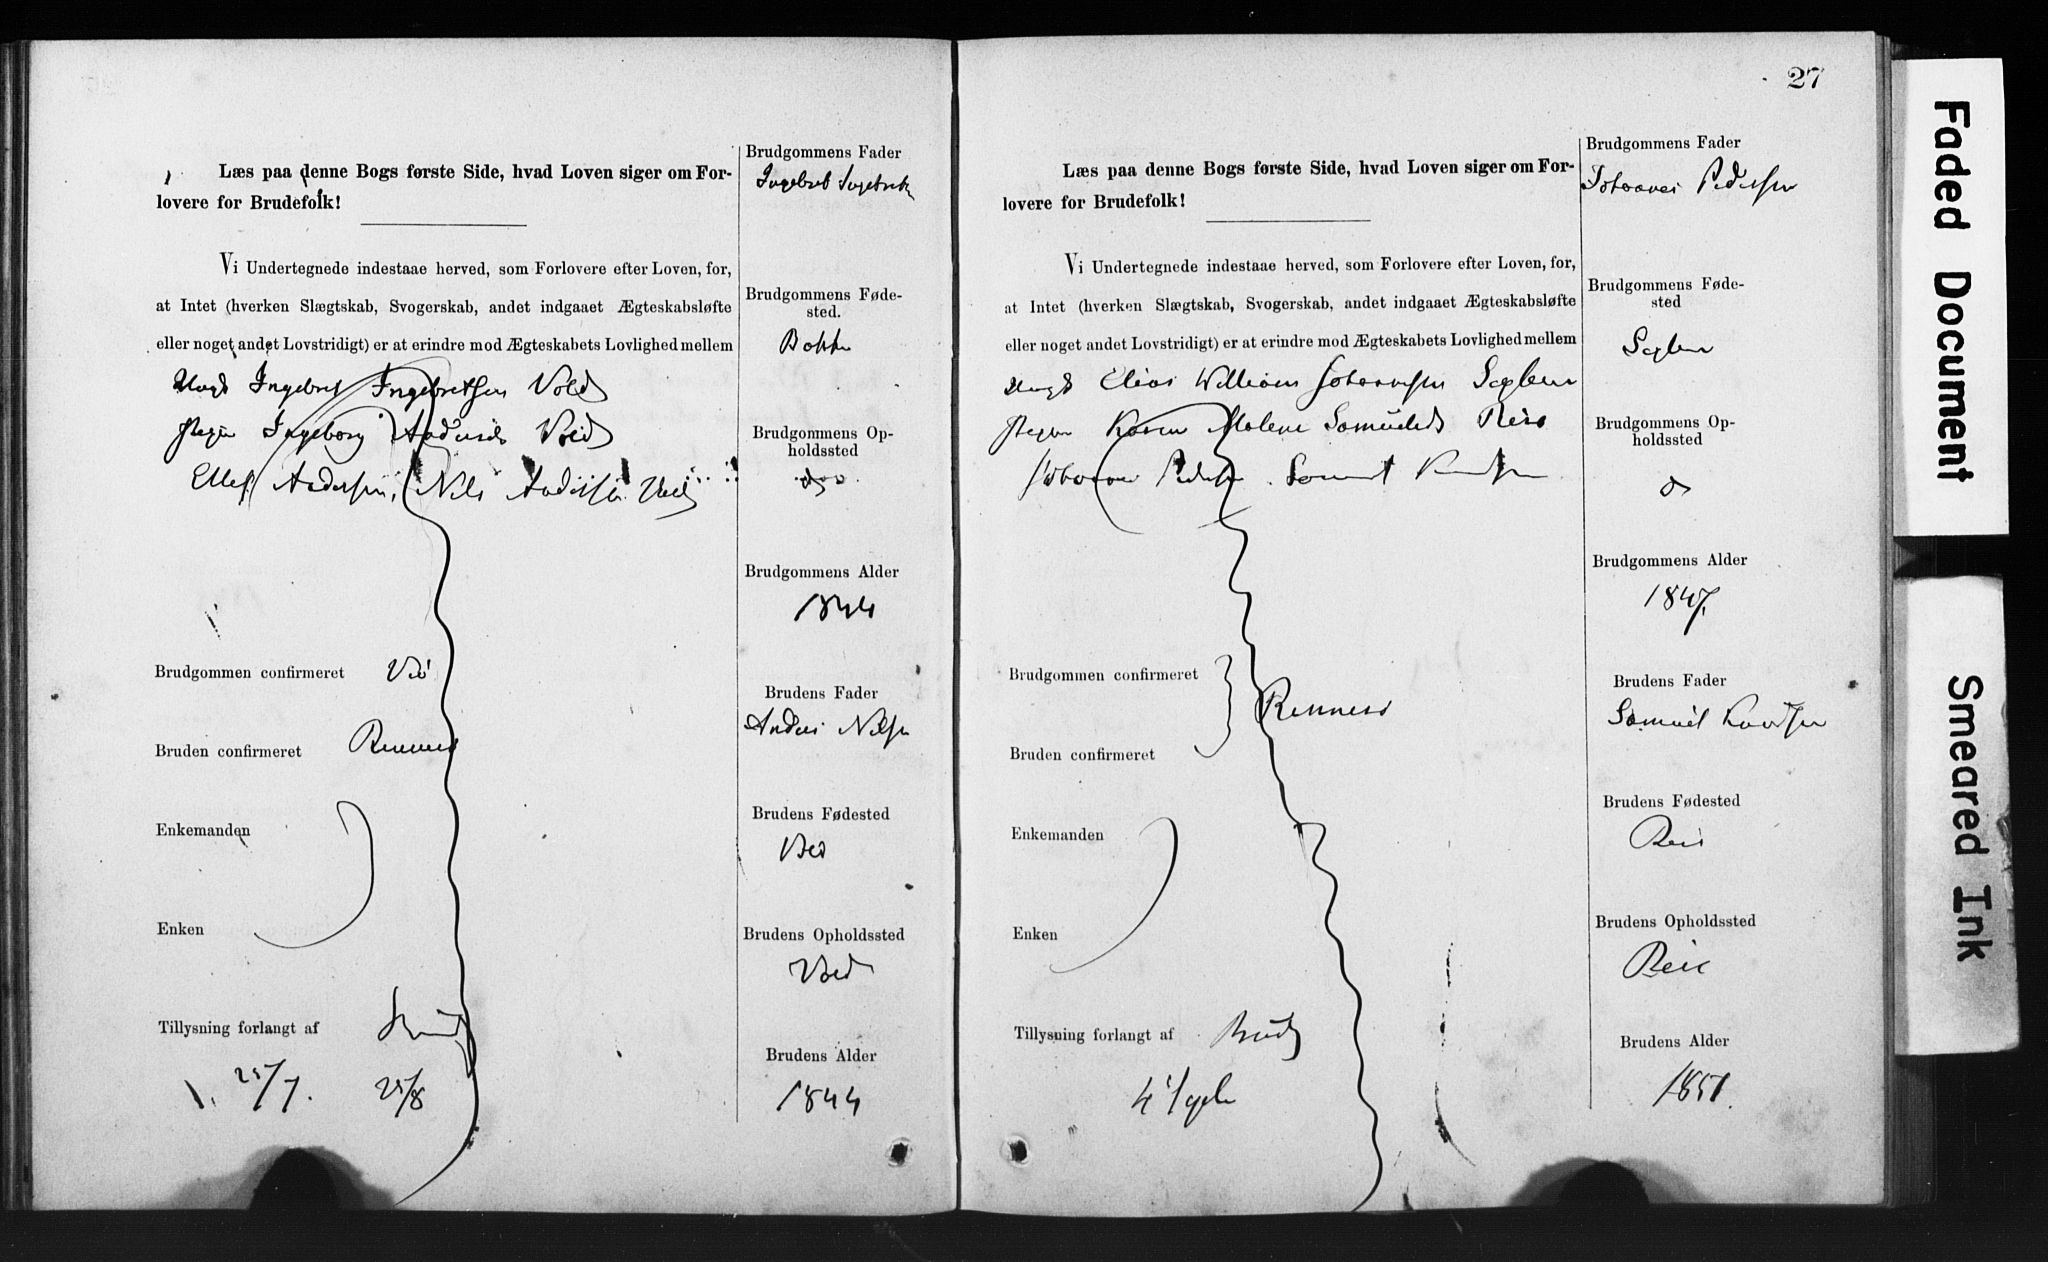 Læs paa denne Bogs første Side, hvad Loven siger om For-
lovere for Brudefolk!
Vi Undertegnede indestaae herved, som Forlovere efter Loven, for,
at Intet (hverken Slægtskab, Svogerskab, andet indgaaet Ægteskabsløfte
eller noget andet Lovstridigt) er at erindre mod Ægteskabets Lovlighed mellem
Ungk Ingebret Ingebretsen Vold
Pigen Ingeborg Andersd
Ellef Andersen, Nils Andersen
Brudgommen confirmeret
Bruden confirmeret Rennes
Enkemanden
Enken
Tillysning forlangt af
25/7. 25/8
Brudgommens Fader
Ingebret
Brudgommens Føde-
sted.
Bokke
Brudgommens Op-
holdssted
Brudgommens Alder
1844
Brudens Fader
Anders Nilsen
Brudens Fødested
Brudens Opholdssted
Brudens Alder
1844
27
Læs paa denne Bogs første Side, hvad Loven siger om For-
lovere for Brudefolk!
Vi Undertegnede indestaae herved, som Forlovere efter Loven, for,
at Intet (hverken Slægtskab, Svogerskab, andet indgaaet Ægteskabsløfte
eller noget andet Lovstridigt) er at erindre mod Ægteskabets Lovlighed mellem
Ungk Elias William Johannesen
Pigen Karen Malene Samuelsd
Johannes Pedersen
Brudgommen confirmeret
Rennesø
Bruden confirmeret
Enkemanden
Enken
Tillysning forlangt af Brudg
Brudgommens Fader
Johannes Pedersen
Brudgommens Føde-
sted
Brudgommens Op-
holdssted
Brudgommens Alder
1847.
Brudens Fader
Samuel Knudsen
Brudens Fødested
Brudens Opholdssted
Brudens Alder
1851.
Faded Document
Smeared Ink